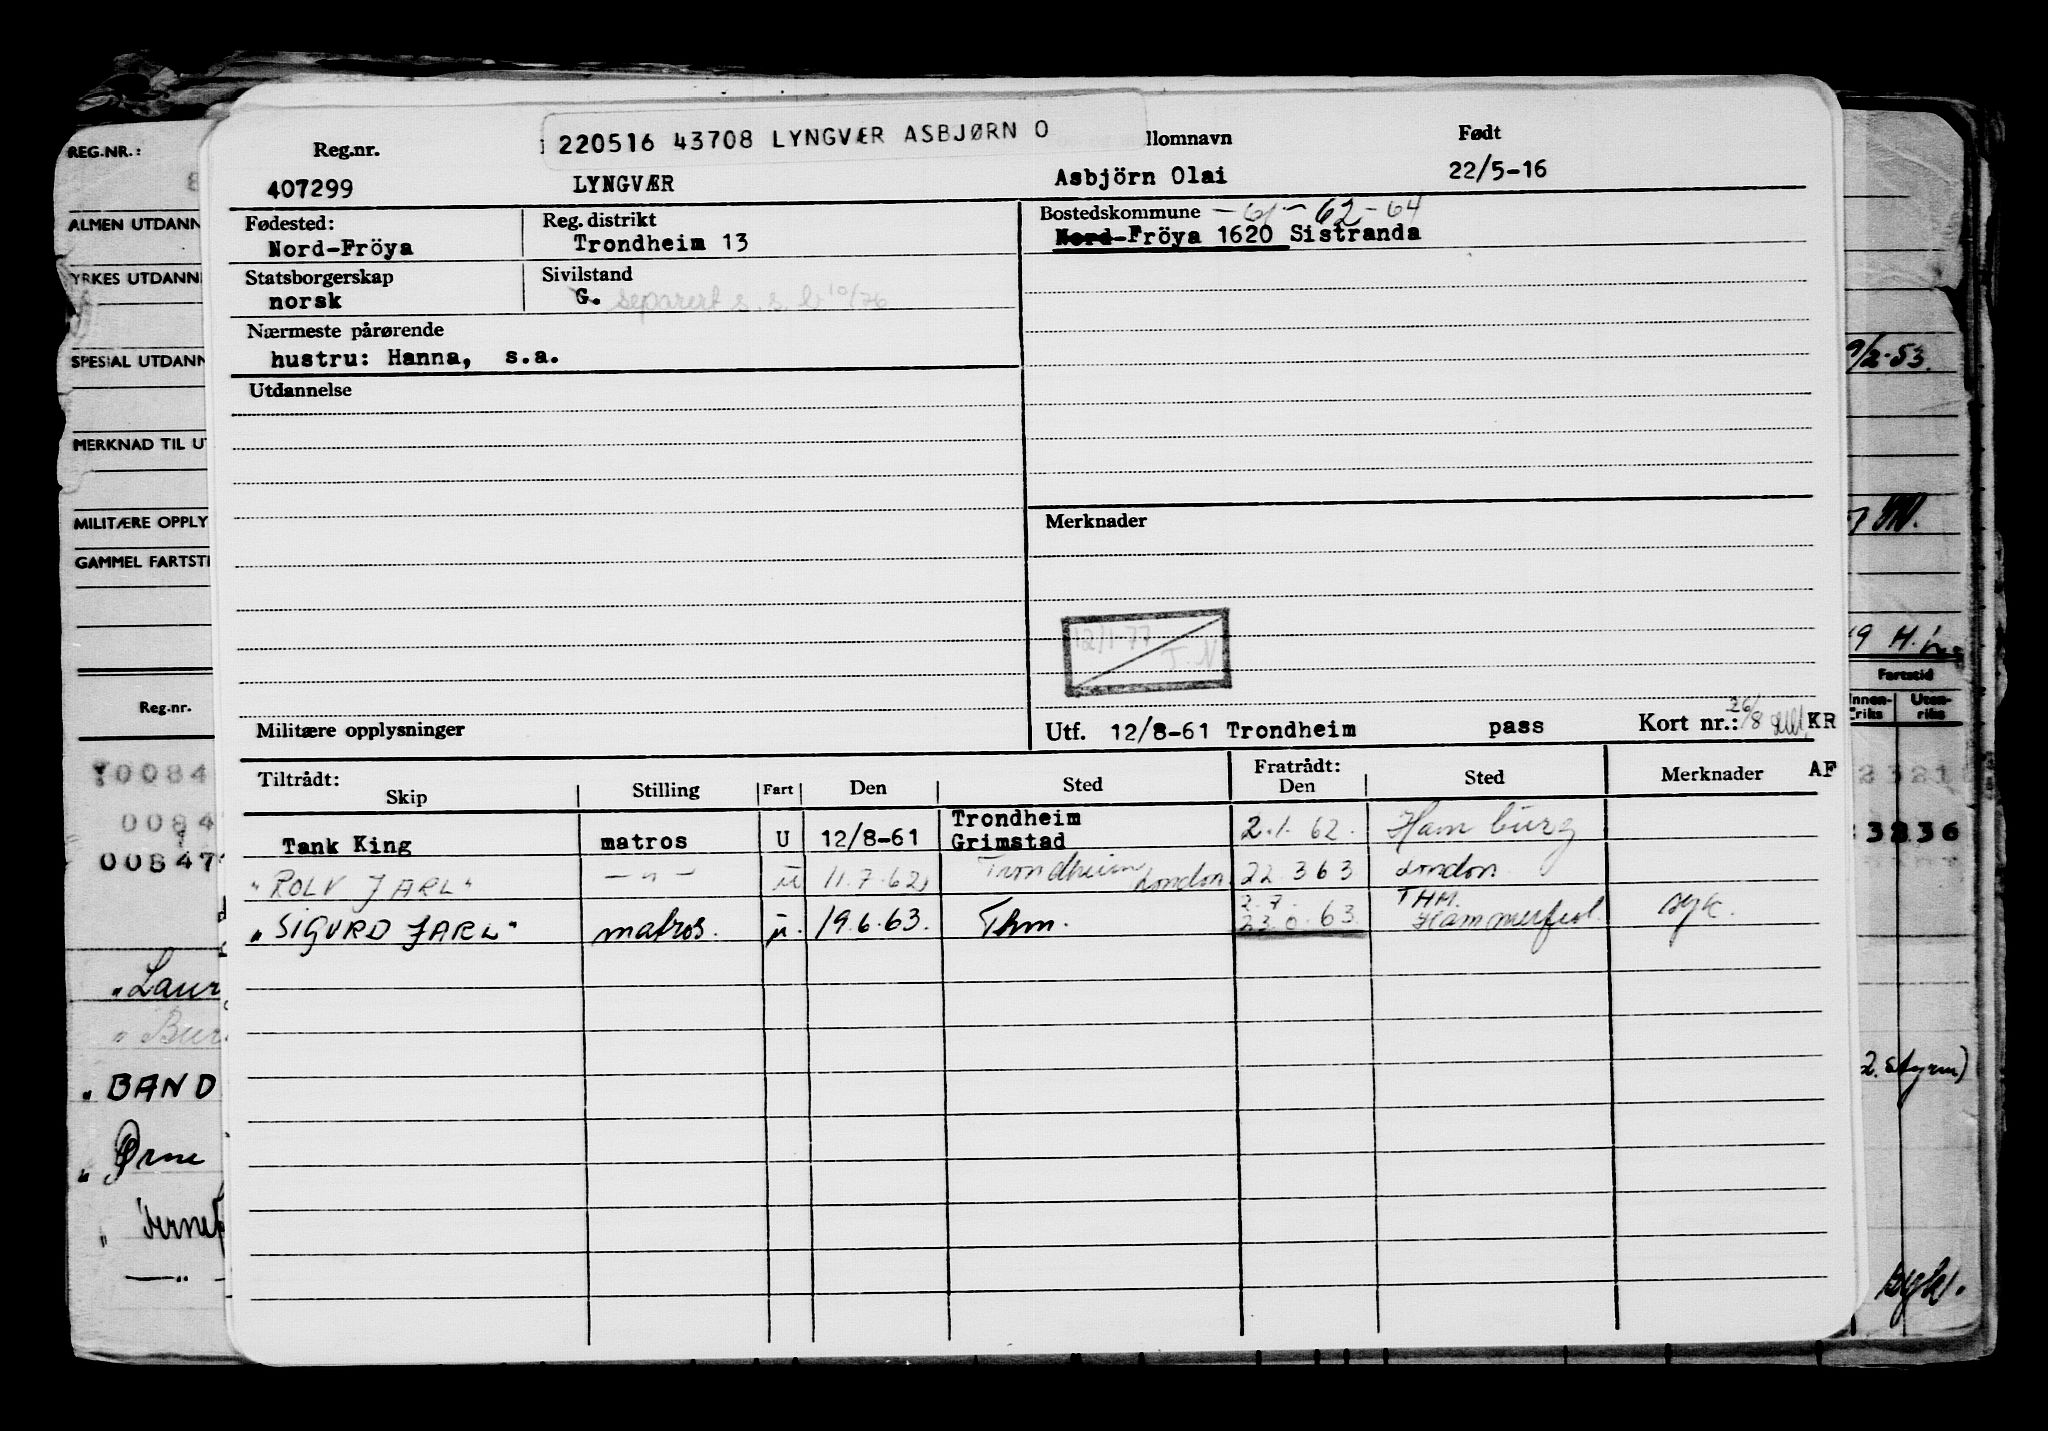 220516 43708 LYNGVÆR ASBJØRN O
Reg.nr. llomnavn Født
407299 LYNGVÆR Asbjörn Olai 22/5-16
Fødested: Reg. distrikt Bostedskommune - 61 - 62 - 64
Nord-Fröya Trondheim 13 Nord-Fröya 1620 Sistranda
Statsborgerskap Sivilstand
norsk G. separert s. s. b 10/76
Nærmeste pårørende
hustru: Hanna, s.a.
Utdannelse
Merknader
12/1-77
T. N
Militære opplysninger Utf. 12/8-61 Trondheim pass Kort nr.: 26/8 KR
Tiltrådt: Fratrådt: AF
Skip Stilling Fart Den Sted Den Sted Merknader
Tank King matros U 12/8-61 Trondheim Grimstad 2.1.62. Hamburg
"ROLV JARL" -"- u 11.7.62 Trondheim London 22.3 63 London
"SIGURD JARL" matros. u. 19.6.63. Thm. 2.7. 23.0.63. THM. Hammerfest. syk.
REG.NR.:
ALMEN UTDANN
YRKES UTDANN
SPESIAL UTDANN
MERKNAD TIL UT
MILITÆRE OPPLY
GAMMEL FARTSTI
Reg.nr.
0084
0084
00847
"Laur
"Bur
"BAND
"Ørne
"
—"—
9/2-53.
19 H.
Fartstid
Innen-riks Uten-riks
2321
3836
2. styrm)
sykt.